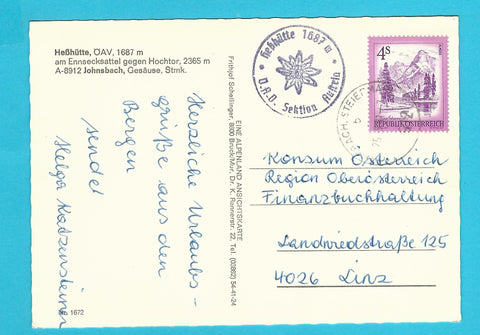 Heßhütte, ÖAV, 1687 m
am Ennsecksattel gegen Hochtor, 2365 m
A-8912 Johnsbach, Gesäuse, Stmk.
Herzliche Urlaubs-
grüße aus den
Bergen
sendet
Helga
Nr. 1672
EINE ALPENLAND ANSICHTSKARTE
Frithjof Schellinger, 8600 Bruck/Mur, Dr. K. Rennerstr. 22, Tel. (03862) 54-41-24
Heßhütte 1687 m
Sektion Austria
4 S
REPUBLIK ÖSTERREICH
BACH, STEIERMA
Konsum Österreich
Region Oberösterreich
Finanzbuchhaltung
Landwiedstraße 125
4026 Linz